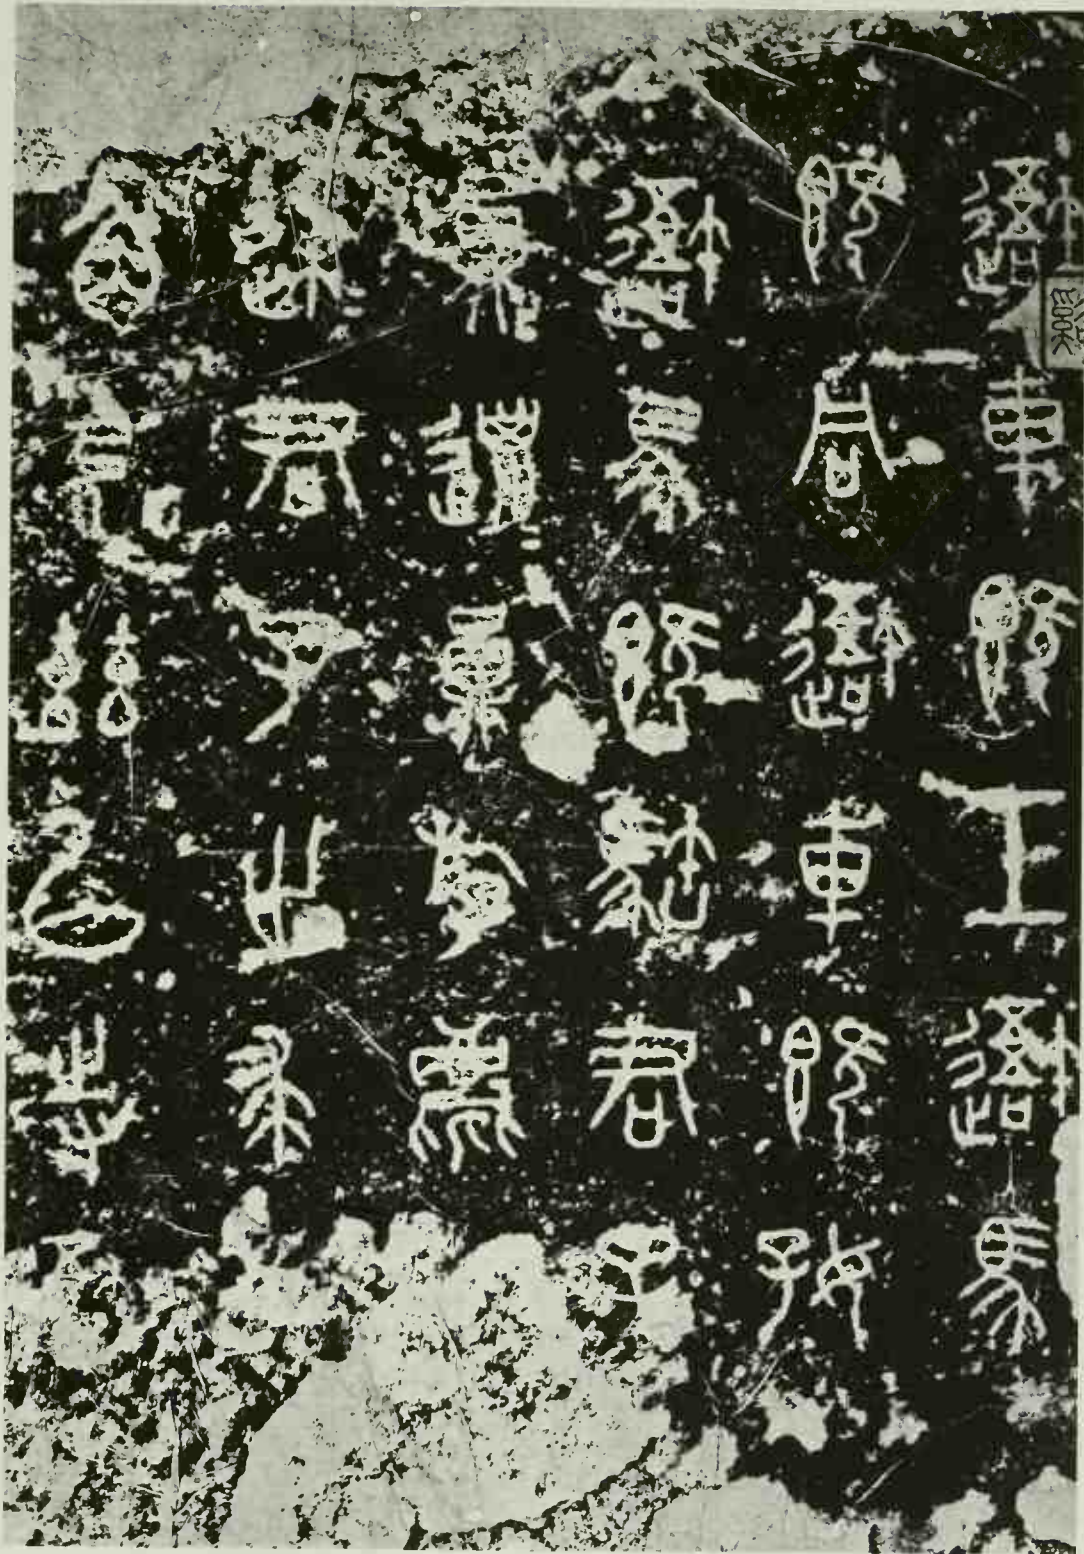 吾車既工吾馬
既同吾車既好
吾馬既𩢾君子
員邋員斿麀
速君子之求
角弓茲以寺